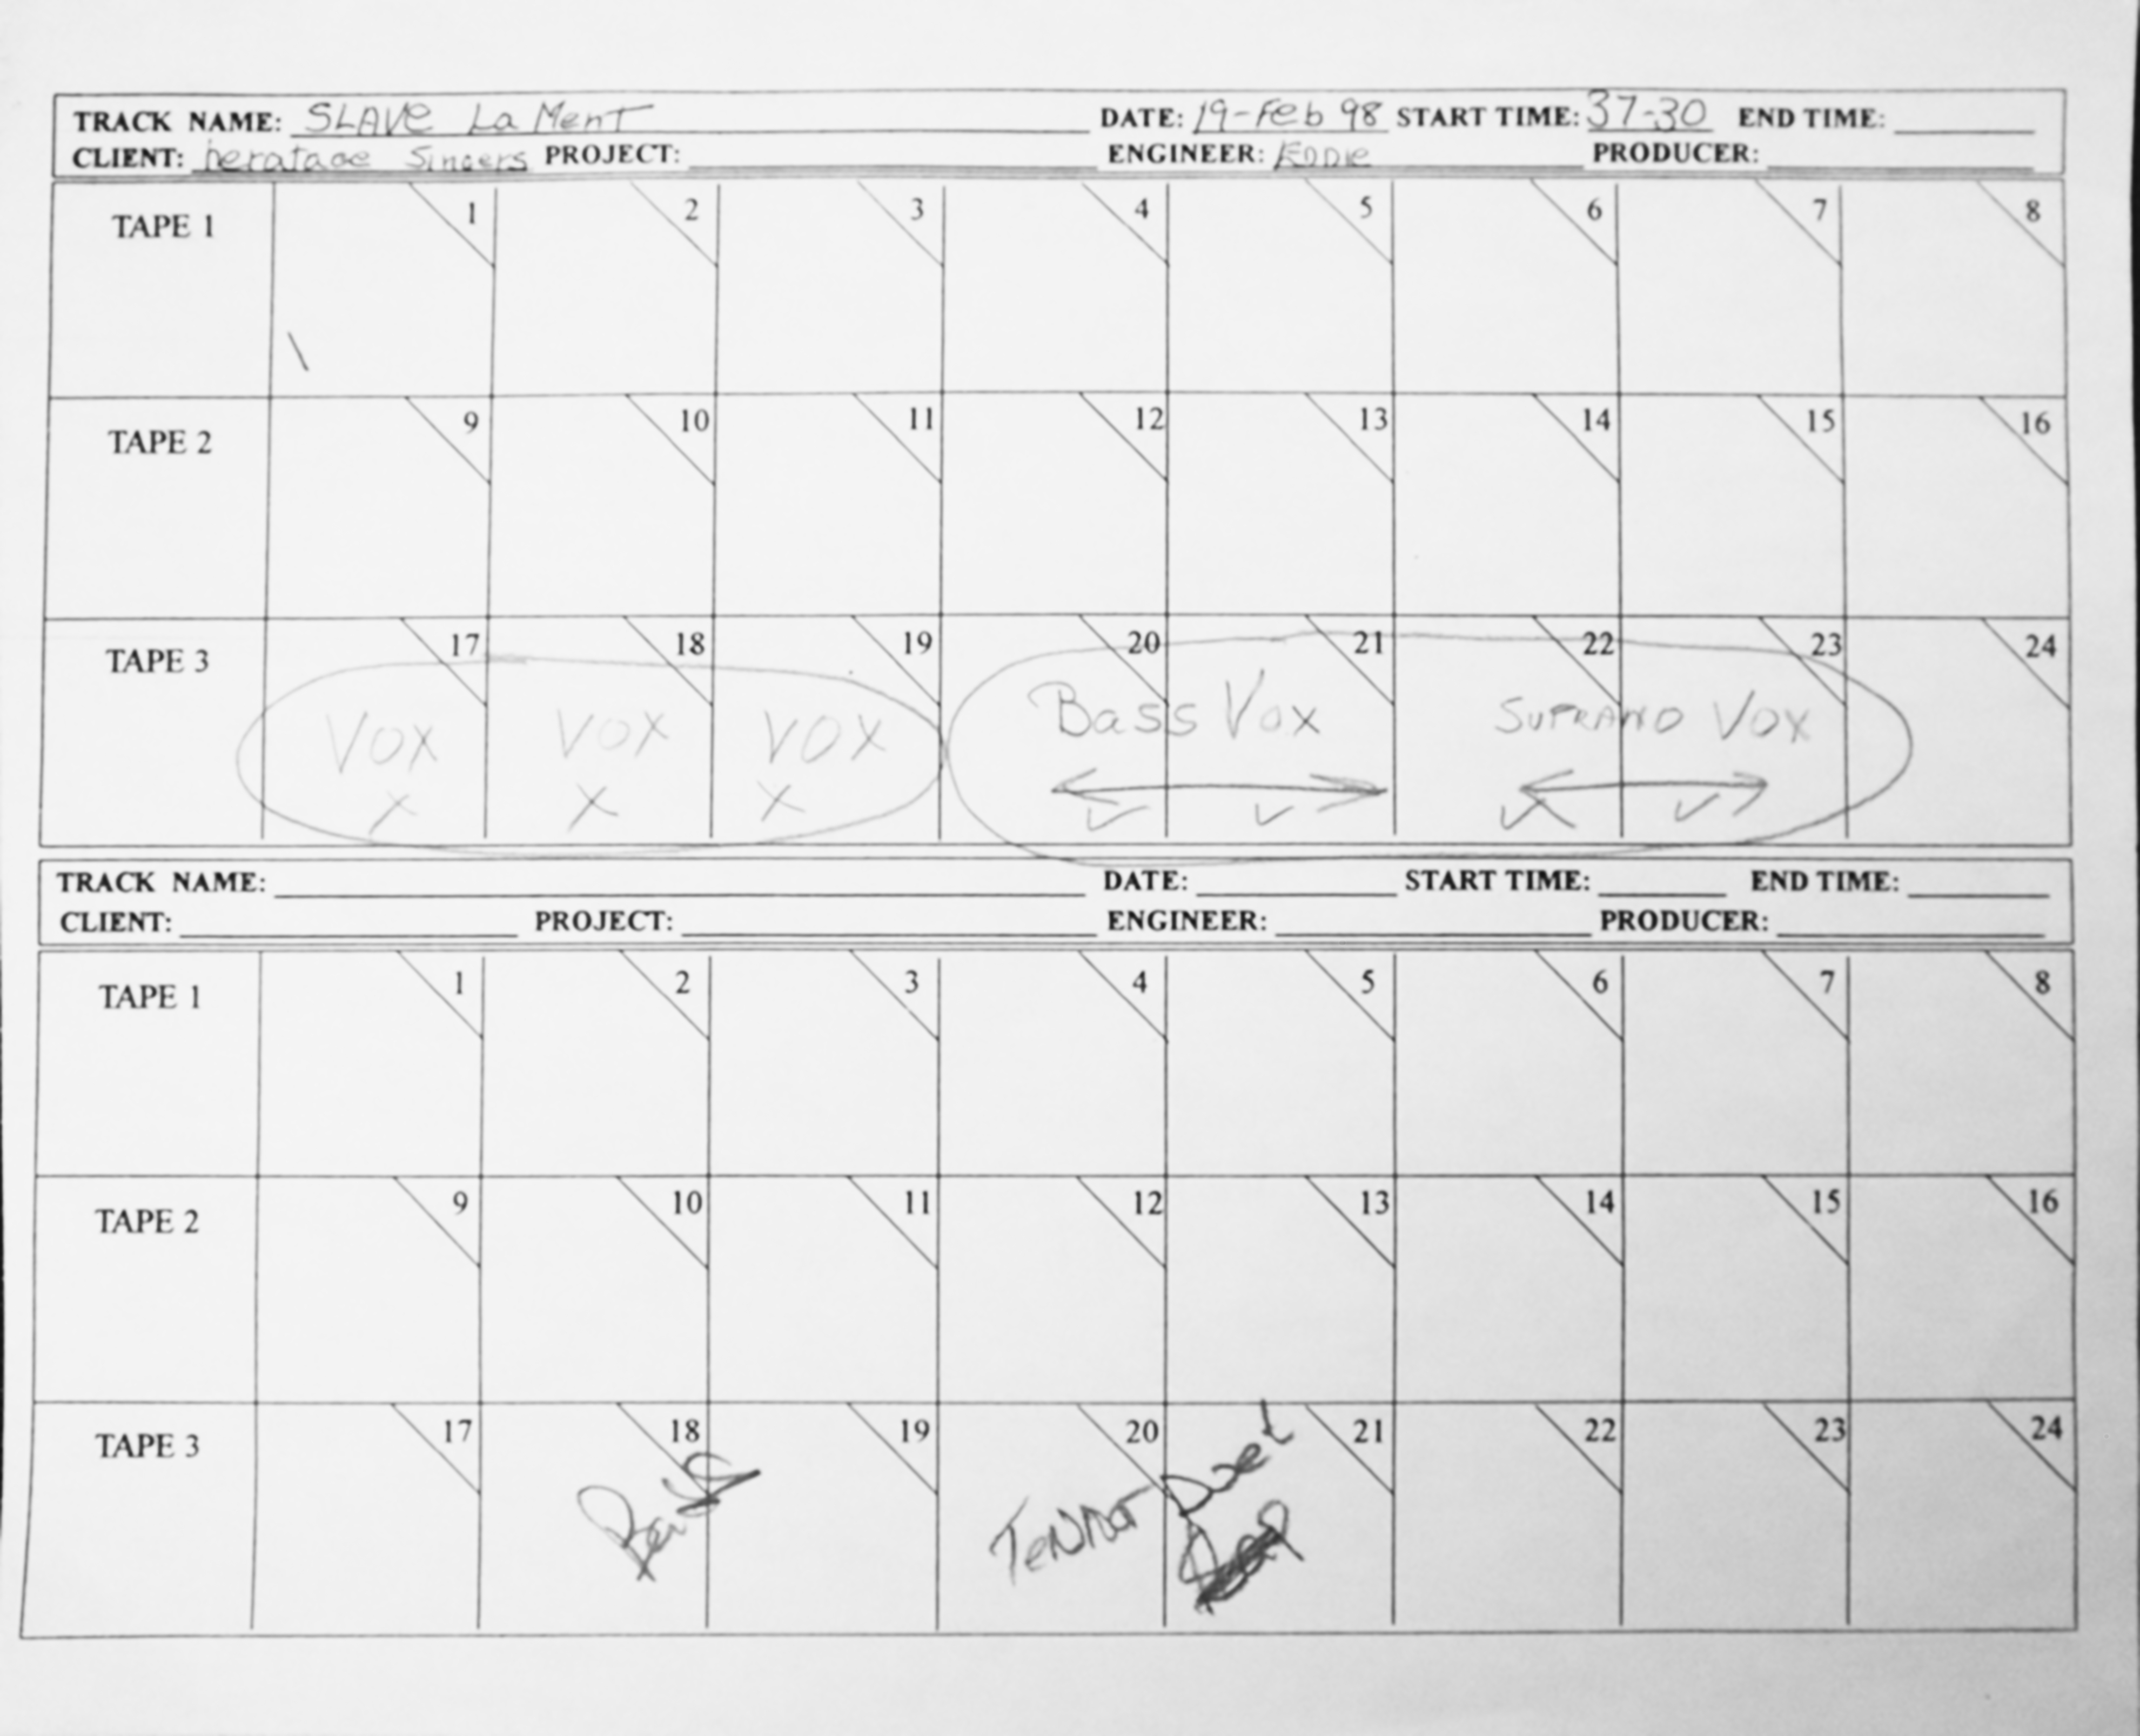 TRACK NAME: SLAVE LaMenT DATE: 19-Feb 98 START TIME: 37-30 END TIME:
CLIENT: heratage Singers PROJECT: ENGINEER: EDDIE PRODUCER:
TAPE 1 1 2 3 4 5 6 7 8
TAPE 2 9 10 11 12 13 14 15 16
TAPE 3 17 18 19 20 21 22 23 24
VOX VOX VOX Bass Vox SUPRANO VOX
X X X
TRACK NAME: DATE: START TIME: END TIME:
CLIENT: PROJECT: ENGINEER: PRODUCER:
TAPE 1 1 2 3 4 5 6 7 8
TAPE 2 9 10 11 12 13 14 15 16
TAPE 3 17 18 19 20 21 22 23 24
Duet